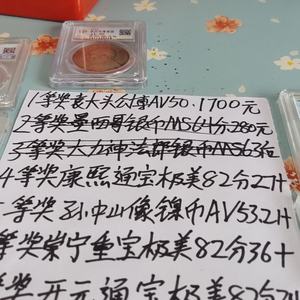 1等奖袁大头公博AV50.1700元
2等奖墨西哥银币MS64分280元
3等奖大力神法郎银币MS63
4等奖康熙通宝极美82分22+
等奖孙中山像镍币AV53.2+
等奖崇宁重宝极美82分36+
等奖开元通宝极美82